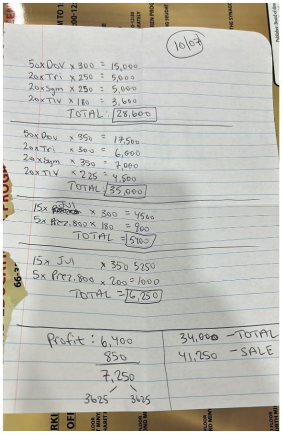 10/07
50x Dov x 300 = 15,000
20x Tri x 250 = 5,000
20x Sym x 250 = 5,000
20x TIV x 180 = 3,600
TOTAL: 28,600
50x Dov x 350 = 17,500
20x Tri x 300 = 6,000
20x Sym x 350 = 7,000
20x TIV x 225 = 4,500
TOTAL: 35,000
15x JUI x 300 = 4500
5x Prez.800 x 180 = 900
TOTAL = 5400
15x JUI x 350 5250
5x Prez.800 x 200 = 1000
TOTAL = 6,250
Profit: 6,400
850
7,250
3625 3625
34,000 - TOTAL
41,250 - SALE